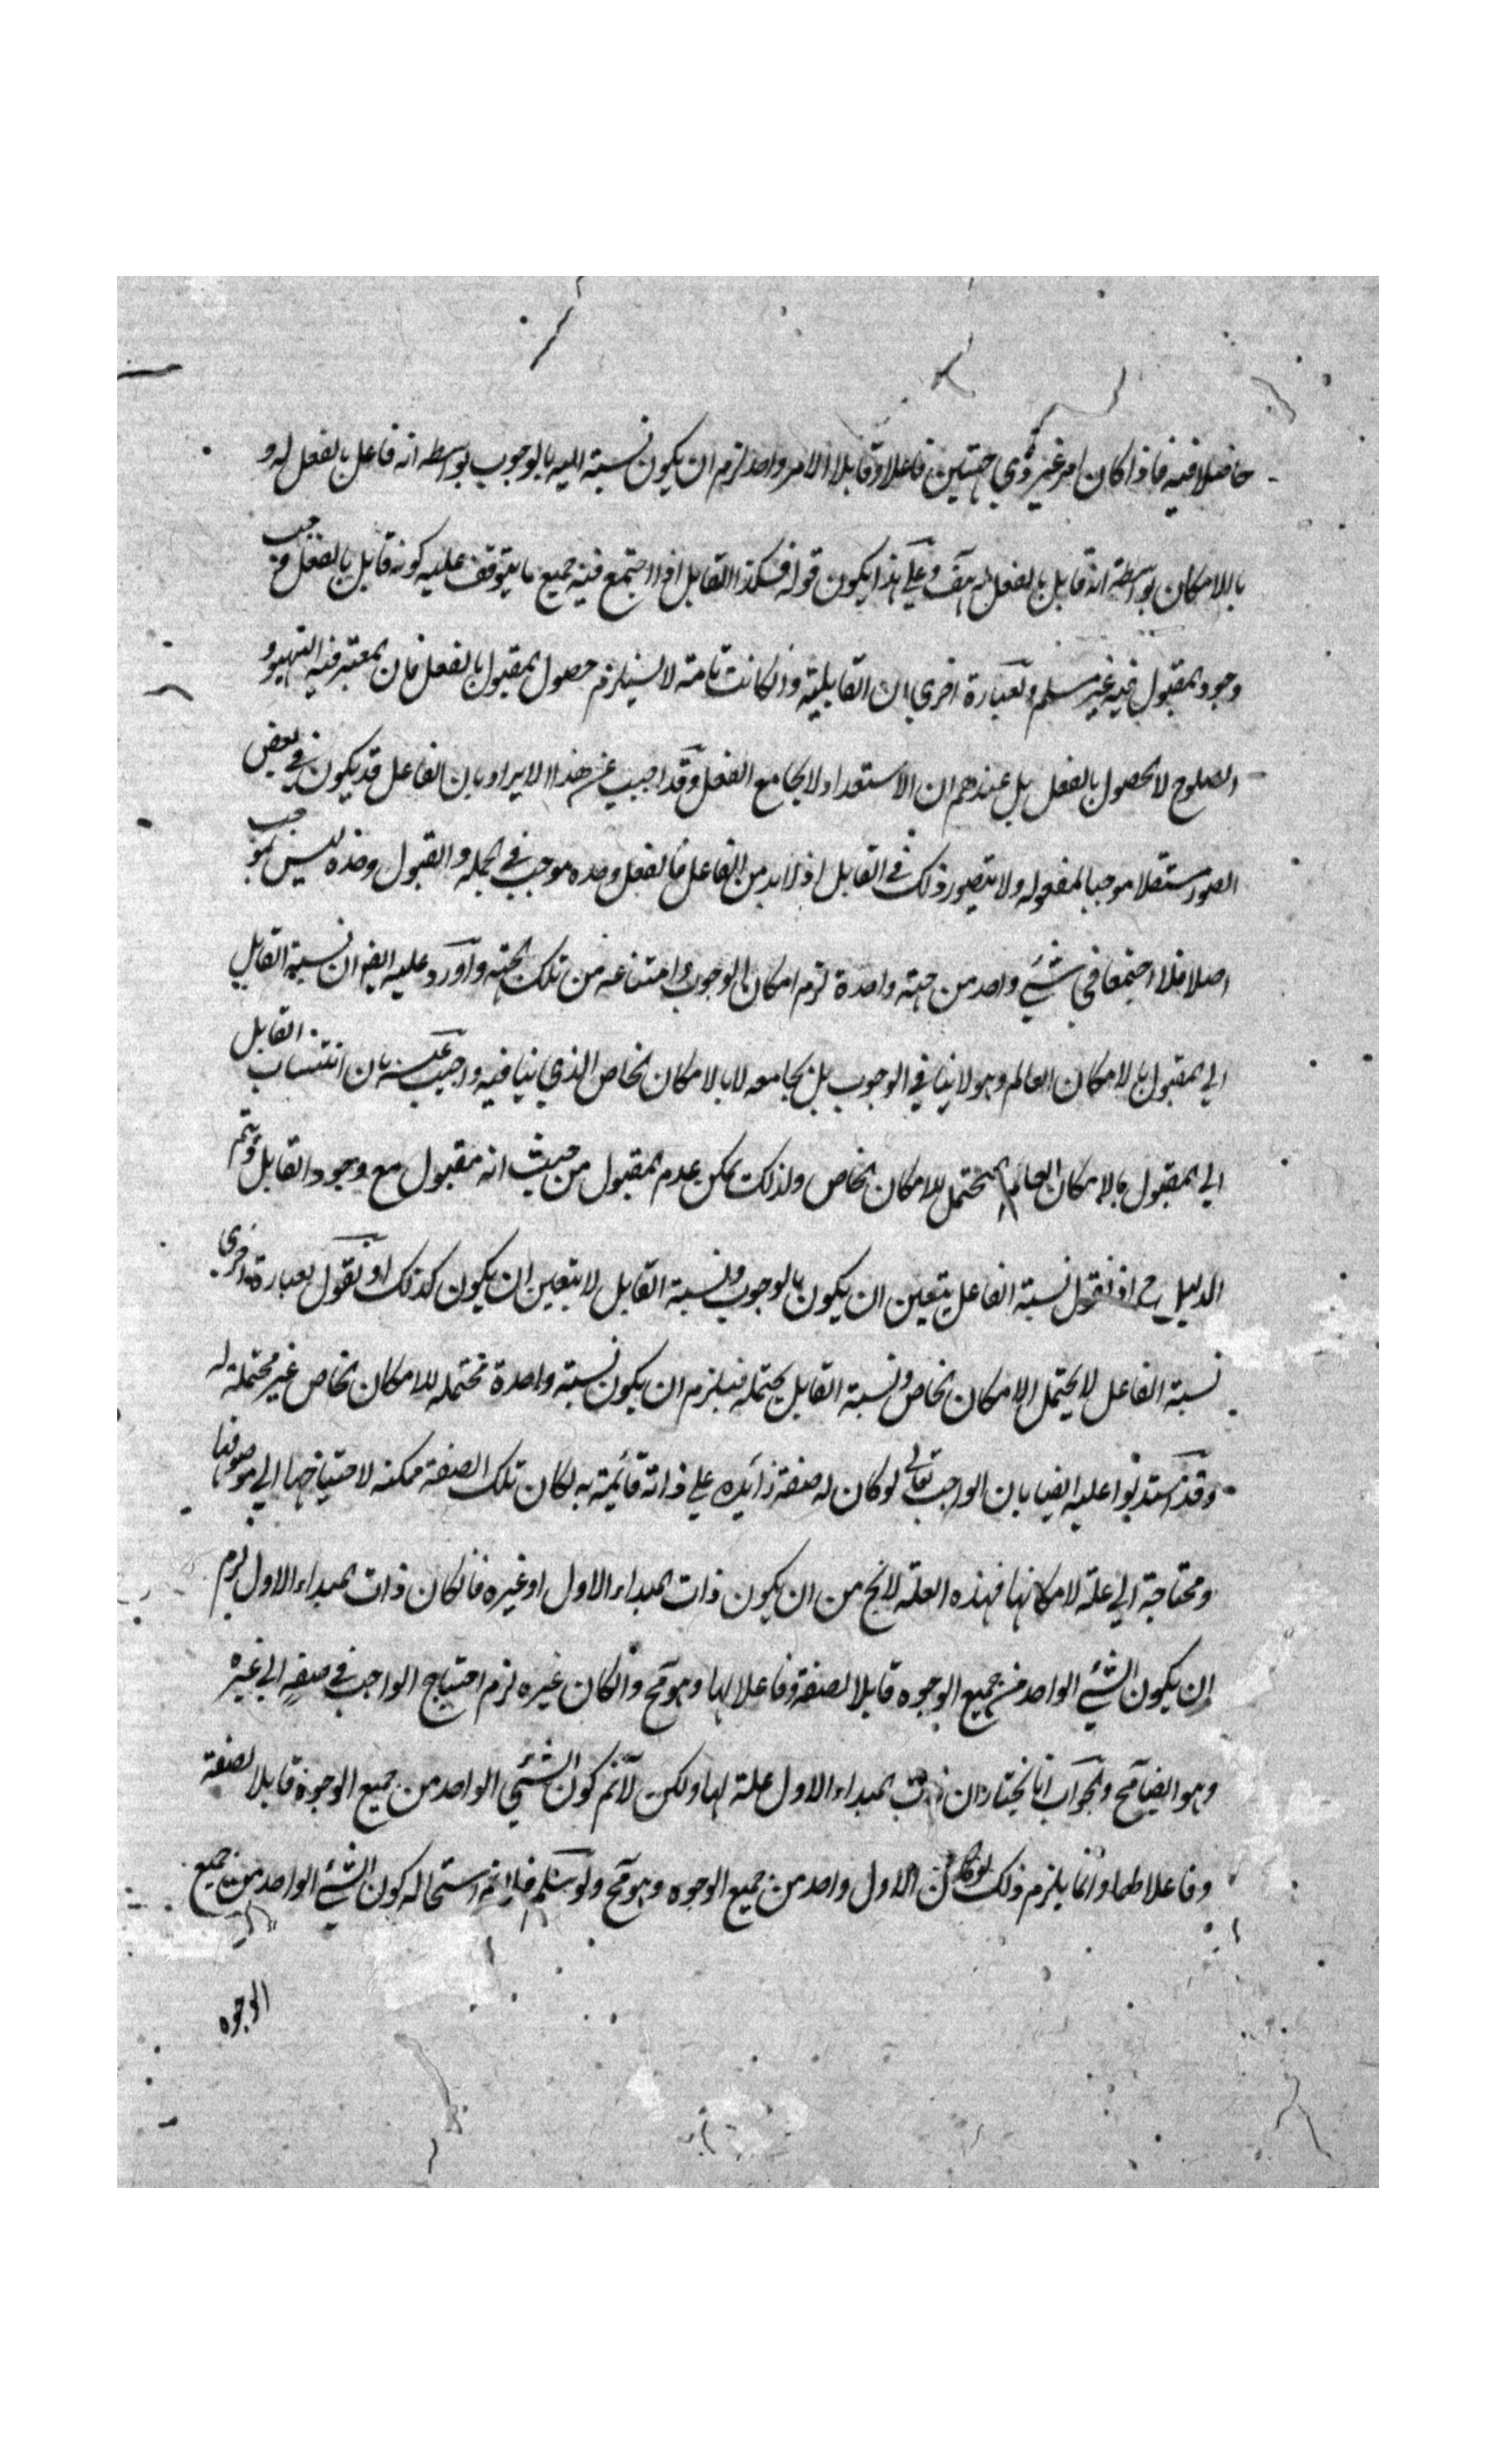 حاصلا فيه فاذا كان امر غير ذي جهتين فاعلا وقابلا لامر واحد لزم ان يكون نسبته اليه بالوجوب بواسطه انه فاعل بالفعل له و
بالامكان بواسطة انه قابل بالفعل له هف وعلي هذا يكون قوله فكذا القابل اذا اجتمع فيه جميع ما يتوقف عليه كونه قابل بالفعل وجب
وجود المقبول فيه غير مسلم وبعبارة اخري ان القابلية وانكانت تامة لا يستلزم حصول المقبول بالفعل فان المعتبر فيه التهيو و
الصلوح لا الحصول بالفعل بل عندهم ان الاستعداد لا يجامع الفعل وقد اجيب عن هذا الايراد بان الفاعل قد يكون في بعض
الصور مستقلا موجبا لمفعوله ولا يتصور ذلك في القابل اذ لا بد من الفاعل فالفعل وحده موجب في الجمله والقبول وحده ليس بموجب
اصلا فلو اجتمعا في شئي واحد من جهة واحدة لزم امكان الوجوب وامتناعه من تلك الجهة واورد عليه ايضا ان نسبة القابل
الي المقبول بالامكان العام وهو لا ينافي الوجوب بل يجامعه لا بالامكان الخاص الذي ينافيه واجيب عنه بان انتساب القابل
الي المقبول بالامكان العام المحتمل للامكان الخاص ولذلك يمكن عدم المقبول من حيث انه مقبول مع وجود القابل ويتم
الدليل ح اذ نقول نسبة الفاعل يتعين ان يكون بالوجوب ونسبة القابل لا يتعين ان يكون كذلك او نقول بعبارة اخري
نسبة الفاعل لا يحتمل الامكان الخاص ونسبة القابل يحتمله فيلزم ان يكون نسبة واحدة محتمله للامكان الخاص غير محتملة له
وقد استدلوا عليه ايضا بان الواجب تعالي لو كان له صفة زائده علي ذاته قائمة به لكان تلك الصفة ممكنه لاحتياجها الي موصوفها
ومحتاجة الي علة لامكانها فهذه العلة لا يخ من ان يكون ذات المبداء الاول او غيره فانكان ذات المبداء الاول لزم
ان يكون الشئي الواحد من جميع الوجوه قابلا لصفة وفاعلا لها وهو مح وانكان غيره لزم احتياج الواجب في صفة الي غيره
وهو ايضا مح والجواب انا نختار ان ذات المبداء الاول علة لها ولكن لانم كون الشئي الواحد من جميع الوجوه قابلا لصفة
وفاعلا لها وانما يلزم ذلك لو كان الاول واحد من جميع الوجوه وهو مح ولو سلم فلانم استحاله كون الشئي الواحد من جميع
الوجوه